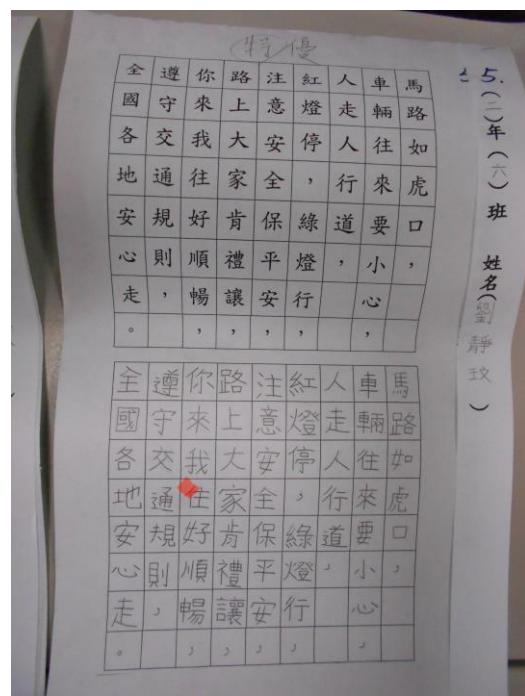 特優
5.(二)年(六)班 姓名(劉靜玟)
馬路如虎口，
車輛往來要小心，
人走人行道，
紅燈停，綠燈行，
注意安全保平安，
路上大家肯禮讓，
你來我往好順暢，
遵守交通規則，
全國各地安心走。
馬路如虎口，
車輛往來要小心，
人走人行道，
紅燈停，綠燈行，
注意安全保平安，
路上大家肯禮讓，
你來我往好順暢，
遵守交通規則，
全國各地安心走。